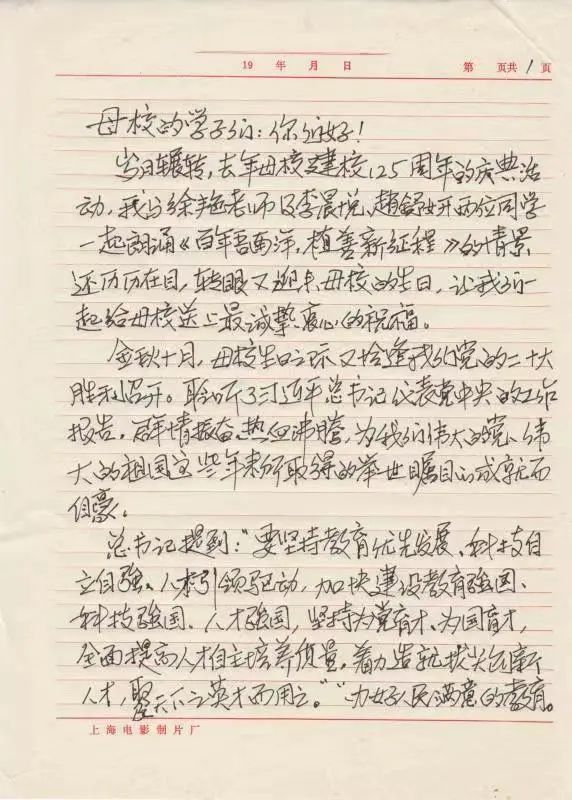 19 年 月 日 第 页共 1 页
母校的学子们：你们好！
岁月辗转，去年母校建校125周年的庆典活
动，我与徐艳老师及李晨悦、赵舒妍两位同学
一起朗诵《百年吾南洋，植善新征程》的情景
还历历在目，转眼又迎来母校的生日，让我们一
起给母校送上最诚挚衷心的祝福。
金秋十月，母校生日之际又恰逢我们党的二十大
胜利召开。聆听了习近平总书记代表党中央的工作
报告，群情振奋热血沸腾，为我们伟大的党、伟
大的祖国这些年来所取得的举世瞩目的成就而
自豪。
总书记提到：“要坚持教育优先发展、科技自
立自强、人才引领驱动，加快建设教育强国、
科技强国、人才强国，坚持为党育才、为国育才，
全面提高人才自主培养质量，着力造就拔尖创新
人才，聚天下之英才而用之。”“办好人民满意的教育。
上海电影制片厂